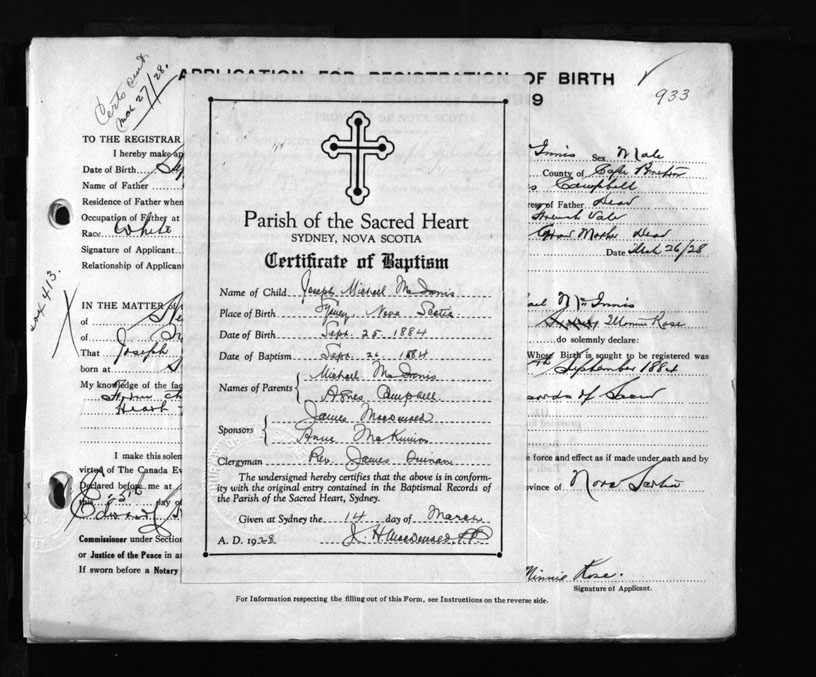 Certs sent
Mar 27/28.
APPLICATION FOR REGISTRATION OF BIRTH
933
9
TO THE REGISTRAR
I hereby make ap
Innis Sex Male
Date of Birth
County of Cape Breton
Name of Father
Campbell
Residence of Father when
ress of Father Dead
Occupation of Father at
French Vale
Race White
Mother Dead
Signature of Applicant
Date Mch 26/28
Relationship of Applican
Parish of the Sacred Heart
SYDNEY, NOVA SCOTIA
Certificate of Baptism
Name of Child Joseph Michael McInnis
Place of Birth Sydney Nova Scotia
Date of Birth Sept. 25 1884
Date of Baptism Sept. 26 1884
Names of Parents Michael McInnis
Agnes Campbell
Sponsors James Macdonald
Anne McKinnon
Clergyman Rev. James Quinan
The undersigned hereby certifies that the above is in conform-
ity with the original entry contained in the Baptismal Records of
the Parish of the Sacred Heart, Sydney.
Given at Sydney the 14 day of March
A. D. 1928 J. H. Macdonald, P.P.
413.
IN THE MATTER
ael McInnis
of
Minnie Rose
of
do solemnly declare:
That Joseph
Whose Birth is sought to be registered was
born at
September 1884
My knowledge of the fac
Heart
I make this solen
e force and effect as if made under oath and by
virtue of The Canada Ev
Declared before me at
ovince of Nova Scotia
this 25th day of
Commissioner under Section
or Justice of the Peace in an
If sworn before a Notary
Minnie Rose.
Signature of Applicant.
For Information respecting the filling out of this Form, see Instructions on the reverse side.